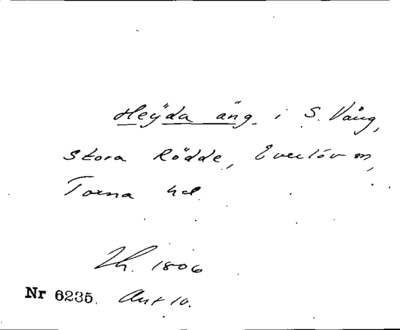 Heÿda äng i S. Vång,
Stora Rödde, Everlöv sn,
Torna hd.
Lh. 1806
Nr 6235. Akt 10.